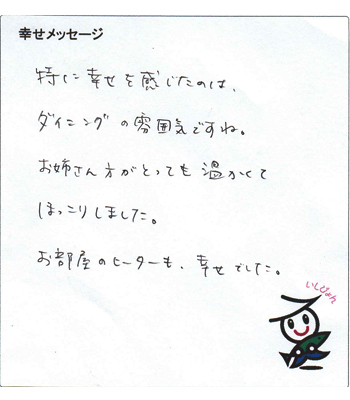 幸せメッセージ
特に幸せを感じたのは、
ダイニングの雰囲気ですね。
お姉さん方がとっても温かくて
ほっこりしました。
お部屋のヒーターも、幸せでした。